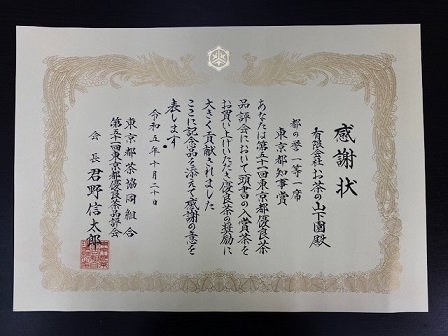 感謝状
有限会社お茶の山下園殿
都の誉一等一席
東京都知事賞
あなたは第五十一回東京都優良茶
品評会において頭書の入賞茶を
お買い上げいただき優良茶の奨励に
大きく貢献されました
ここに記念品を添えて感謝の意を
表します
令和五年十月二十日
東京都茶協同組合
第五十一回東京都優良茶品評会
会長 君野信太郎